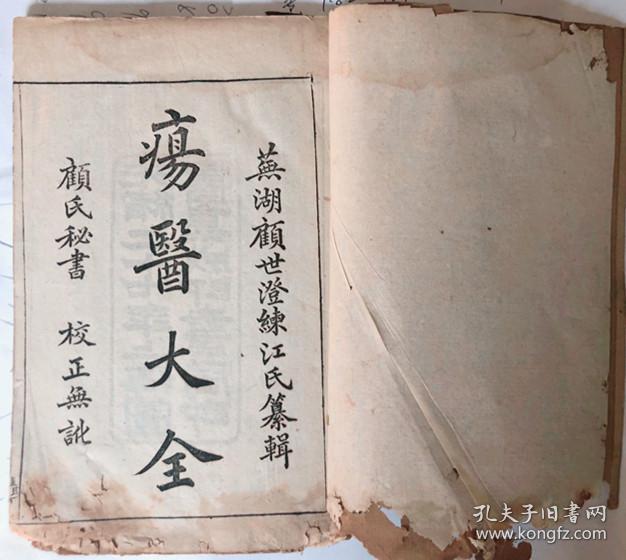 蕪湖顧世澄練江氏纂輯
瘍醫大全
顧氏秘書 校正無訛
孔夫子旧书网
www.kongfz.com